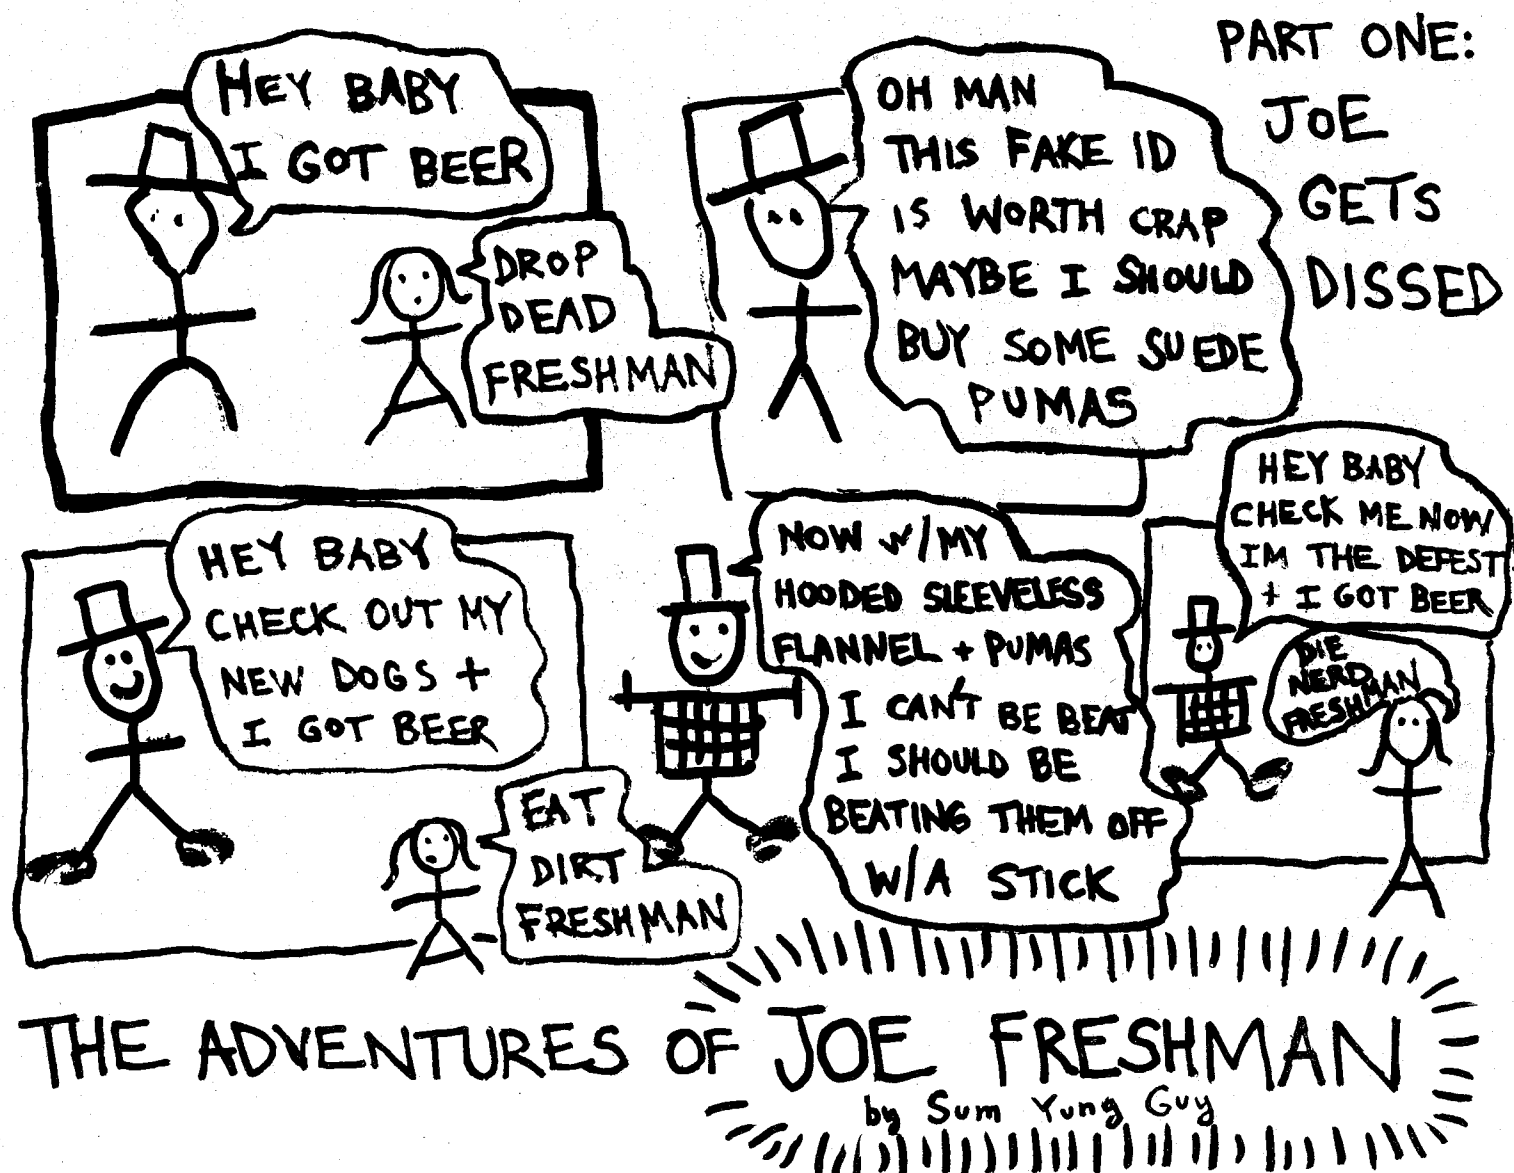 PART ONE:
JOE
GETS
DISSED
HEY BABY
I GOT BEER
DROP
DEAD
FRESHMAN
OH MAN
THIS FAKE ID
IS WORTH CRAP
MAYBE I SHOULD
BUY SOME SUEDE
PUMAS
HEY BABY
CHECK OUT MY
NEW DOGS +
I GOT BEER
EAT
DIRT
FRESHMAN
NOW W/MY
HOODED SLEEVELESS
FLANNEL + PUMAS
I CAN'T BE BEAT
I SHOULD BE
BEATING THEM OFF
W/A STICK
HEY BABY
CHECK ME NOW
IM THE DEFEST
+ I GOT BEER
DIE
NERD
FRESHMAN
THE ADVENTURES OF JOE FRESHMAN
by Sum Yung Guy